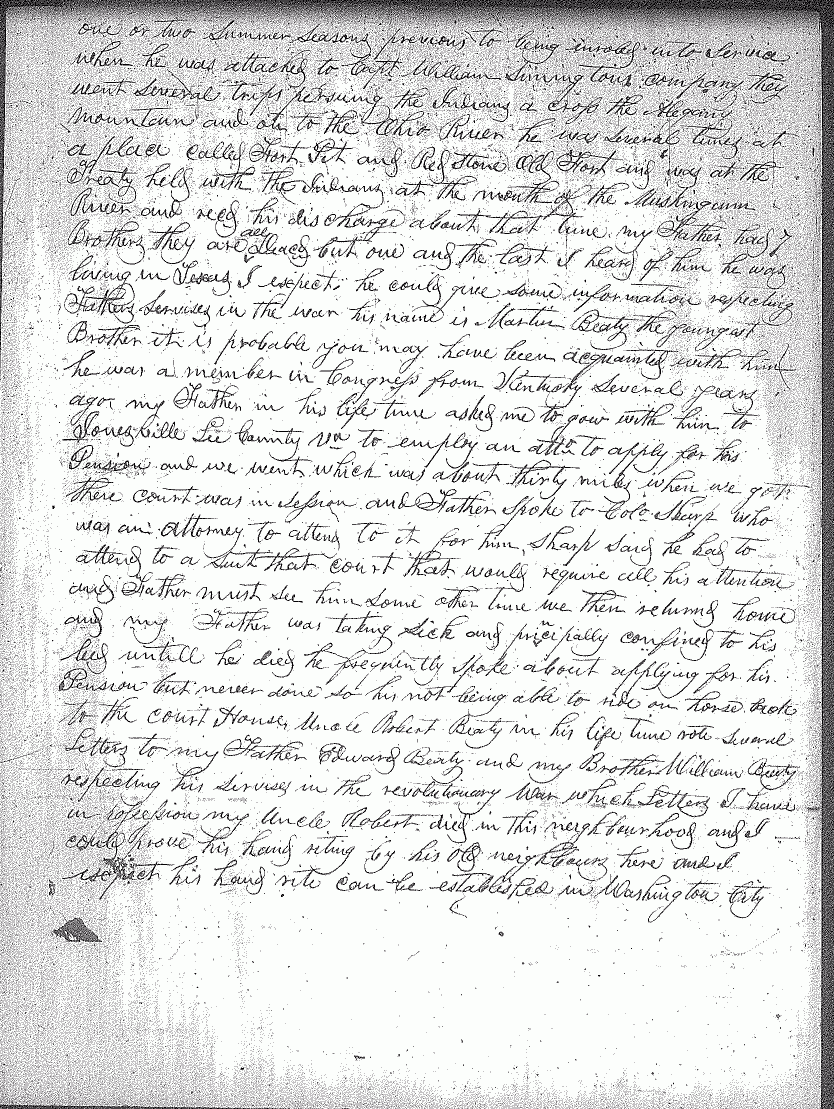 one or two Summer Seasons previous to being inroled into Service
when he was attached to Capt. William Simingtons company they
went Several trips persuing the Indians a cross the Alegany
mountain and on to the Ohio River he was Several times at
a place called Fort Pit and Red Stone Old Fort and was at the
Treaty held with the Indians at the mouth of the Muskingum
River and recd his discharge about that time my Father had 7
Brothers they are all Dead but one and the last I heard of him he was
living in Texas I expect he could give some information respecting
Fathers Servises in the war his name is Martin Beaty the youngest
Brother it is probable you may have been acquainted with him
he was a member in Congress from Kentusky Several years
ago my Father in his life time asked me to gow with him to
Jonesville Lee County Va to employ an atto to apply for his
Pension and we went which was about thirty miles when we got
there court was in Session and Father Spoke to Colo Sharp who
was an Attorney to attend to it for him, Sharp said he had to
attend to a Suit that court that would require all his attention
and Father must See him Some other time we then returnd home
and my Father was taking Sick and principally confined to his
bed untill he died he frequently Spoke about applying for his
Pension but never done so his not being able to ride on horse back
to the court House, Uncle Robert Beaty in his life time rote Several
Letters to my Father Edward Beaty and my Brother William Beaty
respecting his Servises in the revolutionary War which Letters I have
in posession my Uncle Robert died in this neighbourhood and I
could prove his hand riting by his old neighbours here and I
expect his hand rite can be established in Washington City